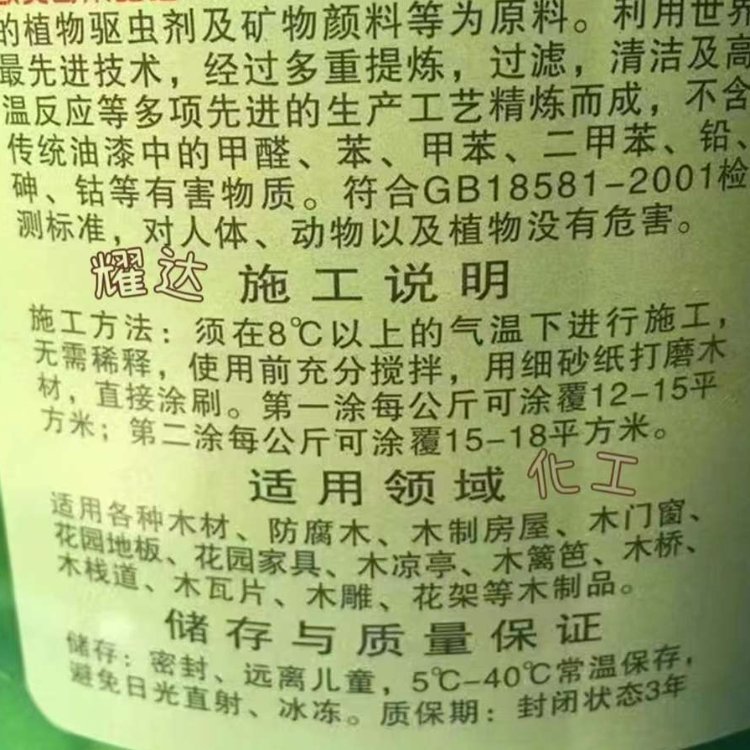 的植物驱虫剂及矿物颜料等为原料。利用世界
最先进技术，经过多重提炼，过滤，清洁及高
温反应等多项先进的生产工艺精炼而成，不含
传统油漆中的甲醛、苯、甲苯、二甲苯、铅、
砷、钴等有害物质。符合GB18581-2001检
测标准，对人体、动物以及植物没有危害。
耀达 施工说明
施工方法：须在8℃以上的气温下进行施工，
无需稀释，使用前充分搅拌，用细砂纸打磨木
材，直接涂刷。第一涂每公斤可涂覆12-15平
方米；第二涂每公斤可涂覆15-18平方米。
适用领域 化工
适用各种木材、防腐木、木制房屋、木门窗、
花园地板、花园家具、木凉亭、木篱笆、木桥、
木栈道、木瓦片、木雕、花架等木制品。
储存与质量保证
储存：密封、远离儿童，5℃-40℃常温保存，
避免日光直射、冰冻。质保期：封闭状态3年